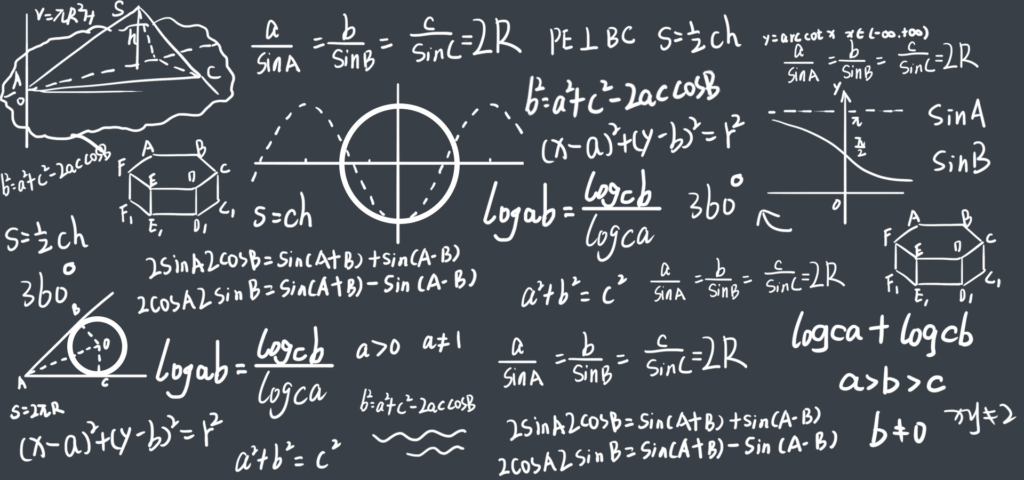 V=πR²H
S
h
A
O
C
a/SinA = b/SinB = c/SinC = 2R
PE⊥BC
S=½ch
y=arc cot x x∈(-∞.+∞)
a/SinA = b/SinB = c/SinC = 2R
b²=a²+c²-2ac cosB
(x-a)²+(y-b)²=r²
y
π
π/2
0
SinA
SinB
b²=a²+c²-2ac cosB
A B
F C
E D
F₁ C₁
E₁ D₁
S=ch
logab = logcb/logca
360°
S=½ch
360°
2sinA2cosB=Sin(A+B)+sin(A-B)
2cosA2SinB=Sin(A+B)-Sin(A-B)
a²+b²=c²
a/SinA = b/SinB = c/SinC = 2R
A B
F C
E D
F₁ C₁
E₁ D₁
B
O
A C
S=2πR
logab = logcb/logca
a>0 a≠1
a/SinA = b/SinB = c/SinC = 2R
logca+logcb
a>b>c
b²=a²+c²-2accosB
(x-a)²+(y-b)²=r²
a²+b²=c²
2sinA2cosB=Sin(A+B)+sin(A-B)
2cosA2SinB=Sin(A+B)-Sin(A-B)
b≠0
xy≠2